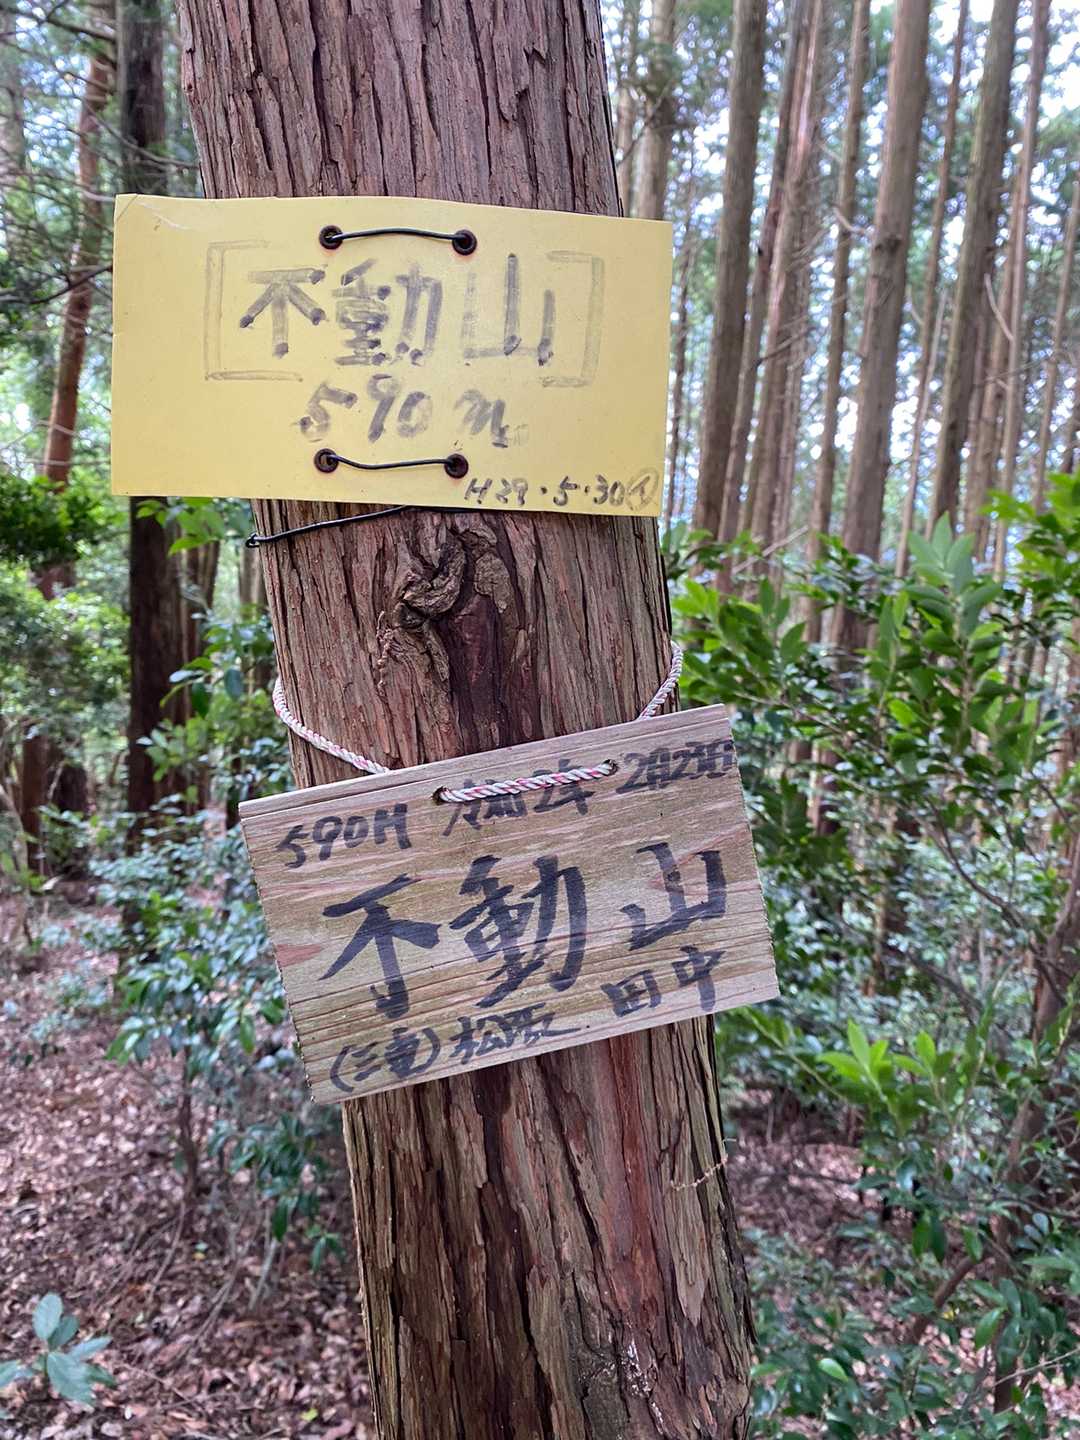 [不動山]
590m
H29.5.30
590M 令和2年 2月23日
不動山
(三重)松阪 田中